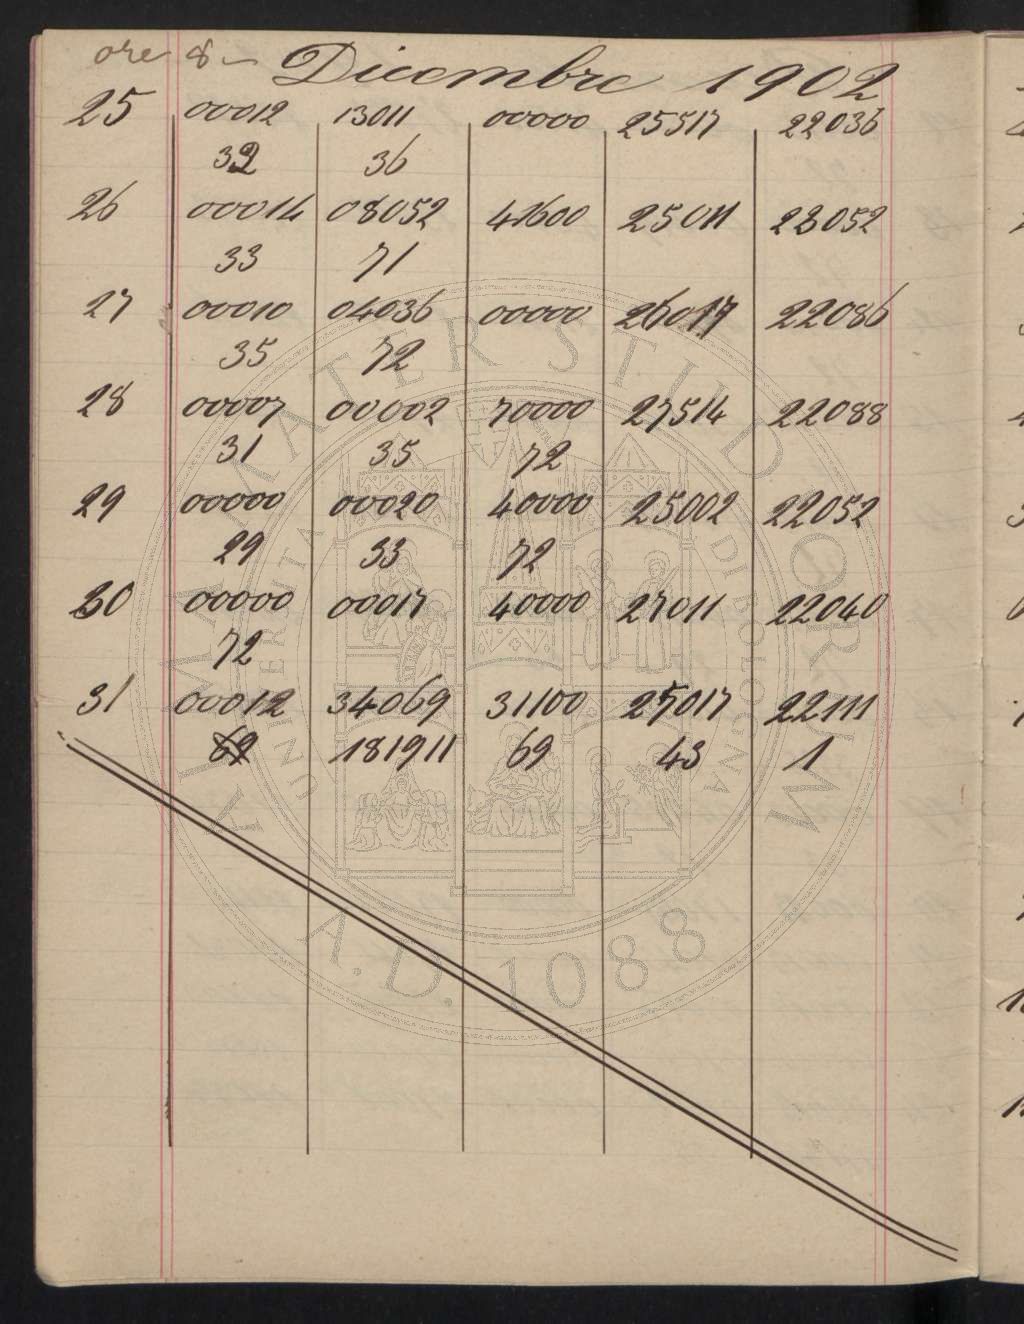 ore 8 — Dicembre 1902
25 00012 13011 00000 25517 22036
32 36
26 00014 08052 41600 25011 23052
33 71
27 00010 04036 00000 26017 22086
35 72
28 00007 00002 70000 27514 22088
31 35 72
29 00000 00020 40000 25002 22052
29 33 72
30 00000 00017 40000 27011 22040
72
31 00012 34069 31100 25017 22111
181911 69 43 1
ALMA MATER STUDIORUM
UNIVERSITÀ DI BOLOGNA
A.D. 1088